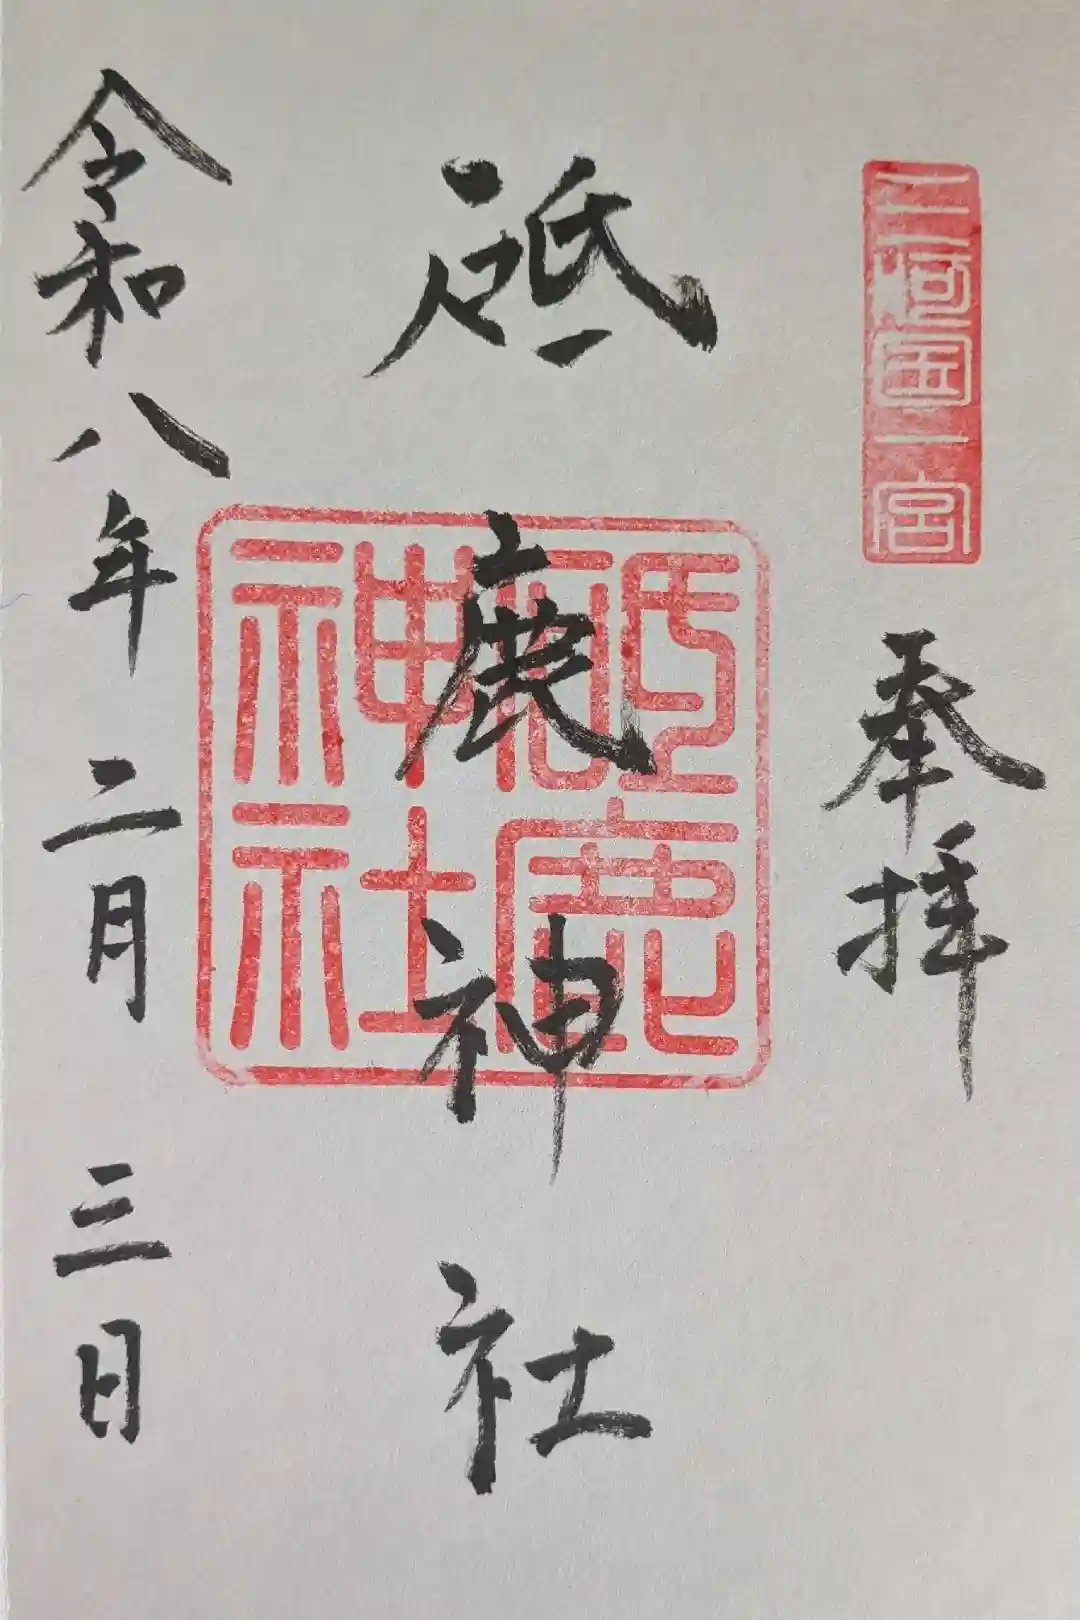 三河国一宮
奉拝
砥鹿神社
砥鹿神社
令和八年二月三日